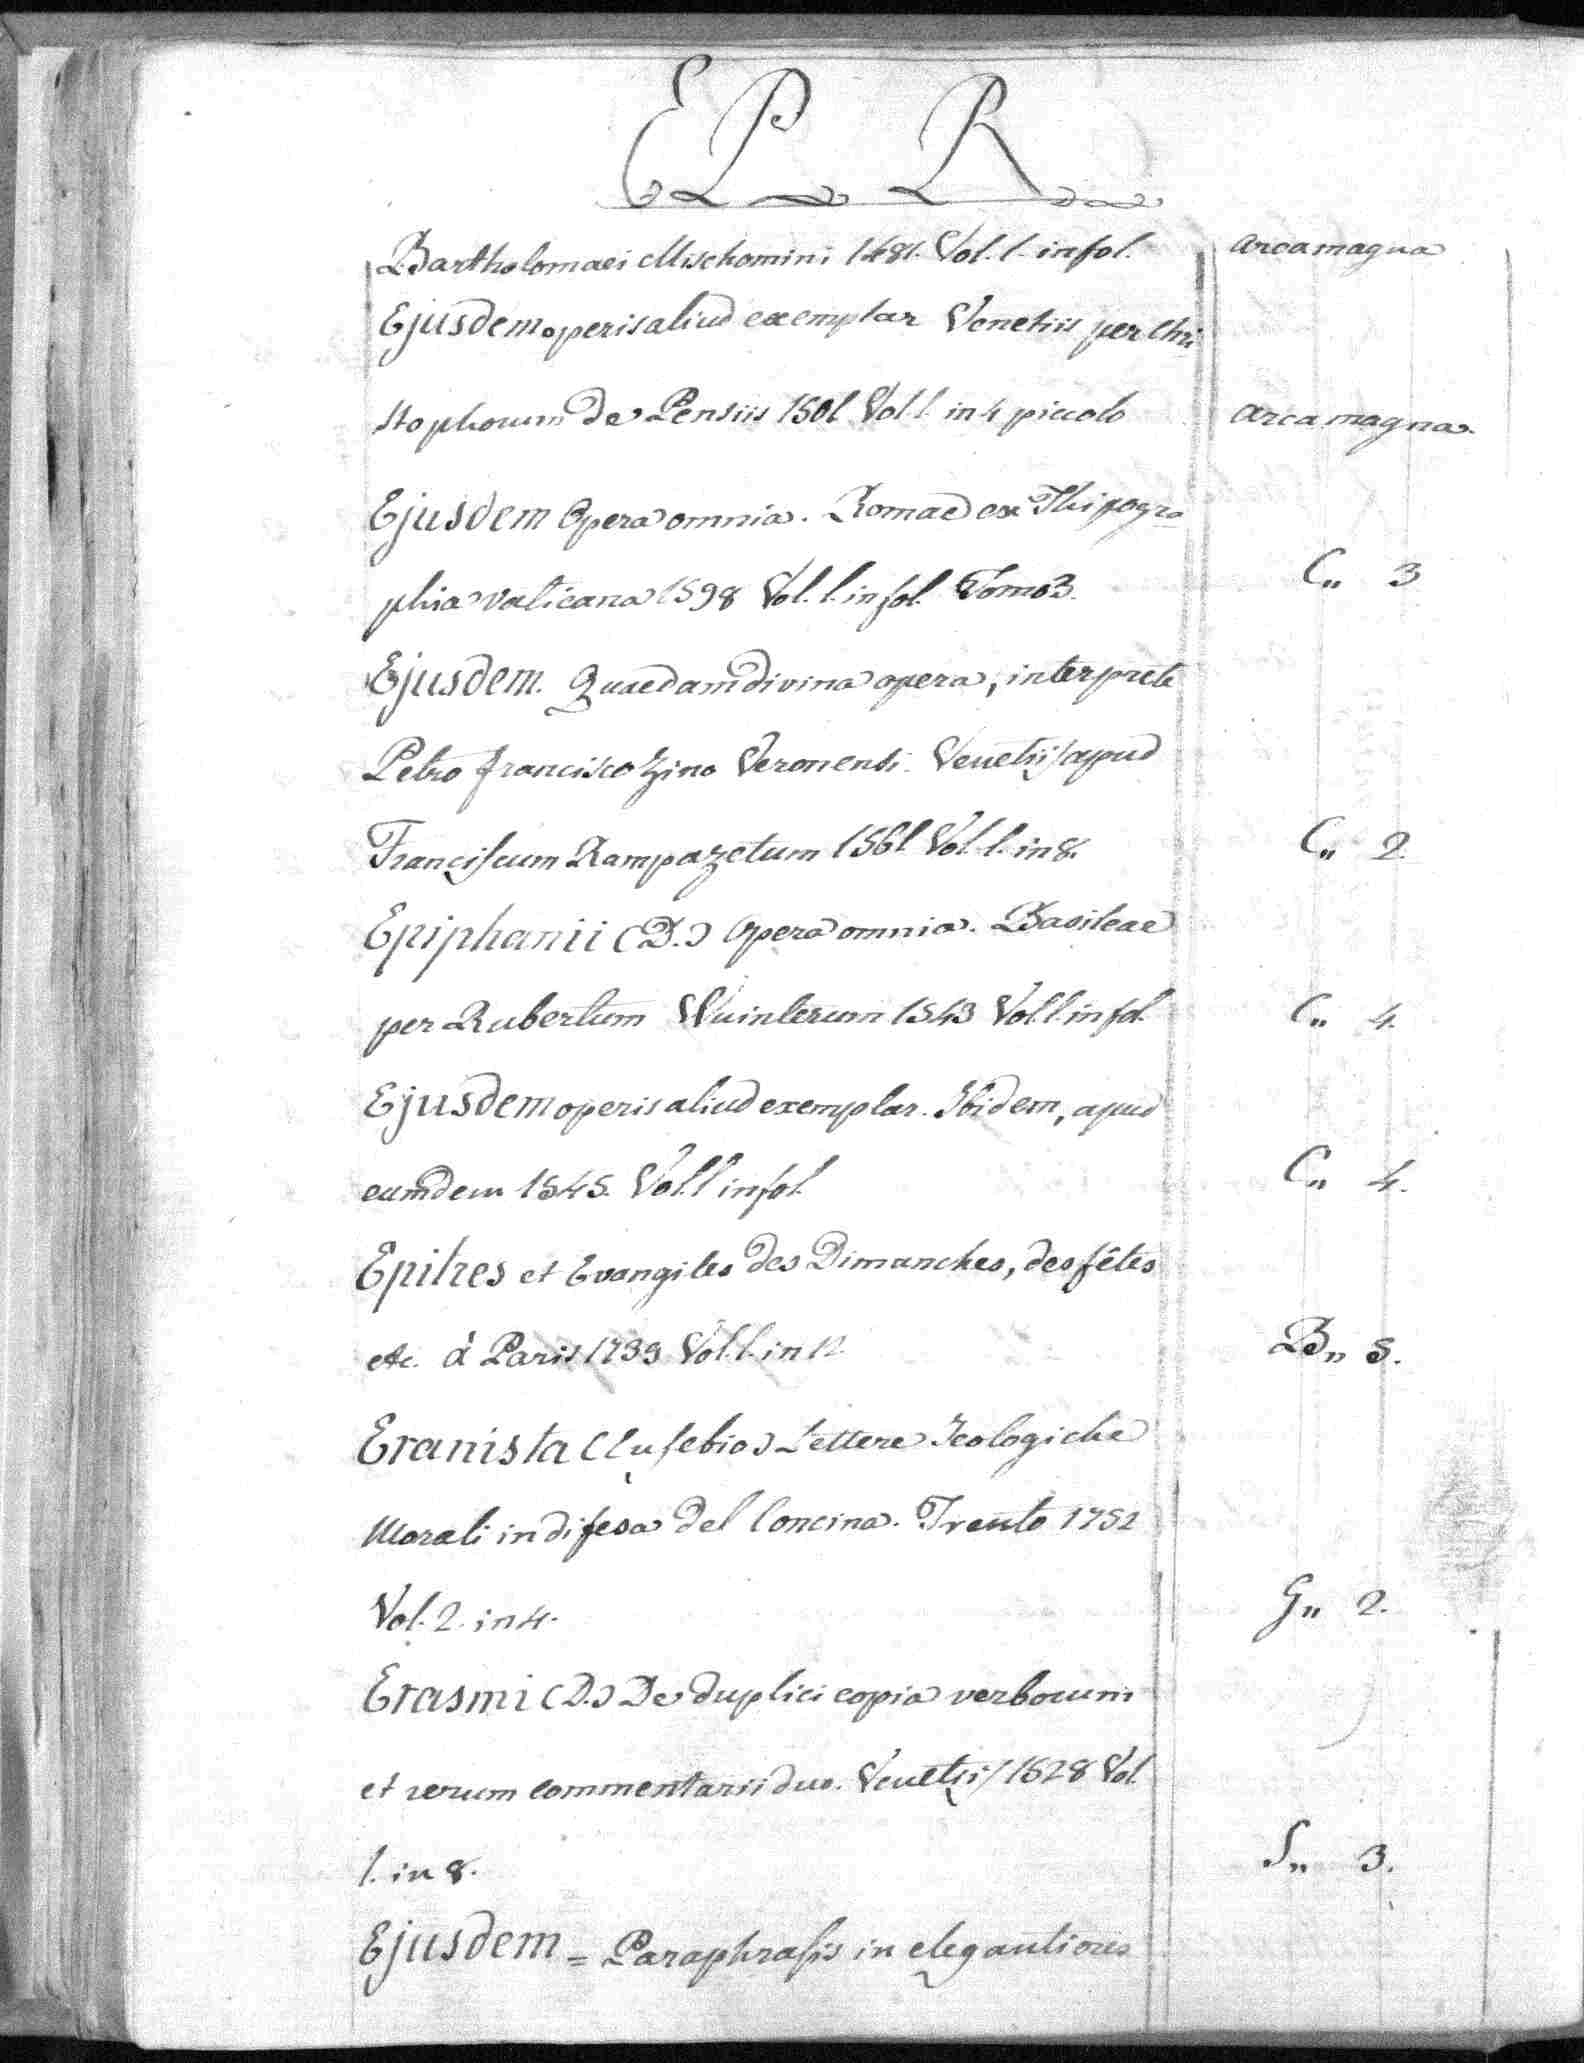 EP R
Bartholomaei Mischomini 1481. Vol. 1. in fol. arca magna
Ejusdem operis aliud exemplar Venetiis per Chri
stophorum de Pensiis 1501 Vol. 1. in 4 piccolo arca magna.
Ejusdem Opera omnia. Romae ex Thipogra
phia vaticana 1598 Vol. 1. in fol. Tomo 3. C„ 3
Ejusdem. Quaedam divina opera, interprete
Petro francisco Zino Veronensi. Venetiis apud
Franciscum Rampazetum 1561 Vol. 1. in 8. C„ 2.
Epiphanii (D.) Opera omnia. Basileae
per Rubertum Wuinterum 1543 Vol. 1. in fol. C„ 4.
Ejusdem operis aliud exemplar. Ibidem, apud
eumdem 1545. Vol. 1 in fol. C„ 4.
Epitres et Evangiles des Dimanches, des fêtes
etc. à Paris 1739 Vol. 1. in 12 B„ 5.
Eranista (Eusebio) Lettere Teologiche
Morali in difesa del Concina. Trento 1752
Vol. 2. in 4. G„ 2.
Erasmi (D.) De duplici copia verborum
et rerum commentarii duo. Venetiis 1528 Vol.
1. in 8. S„ 3.
Ejusdem = Paraphrasis in elegantiores